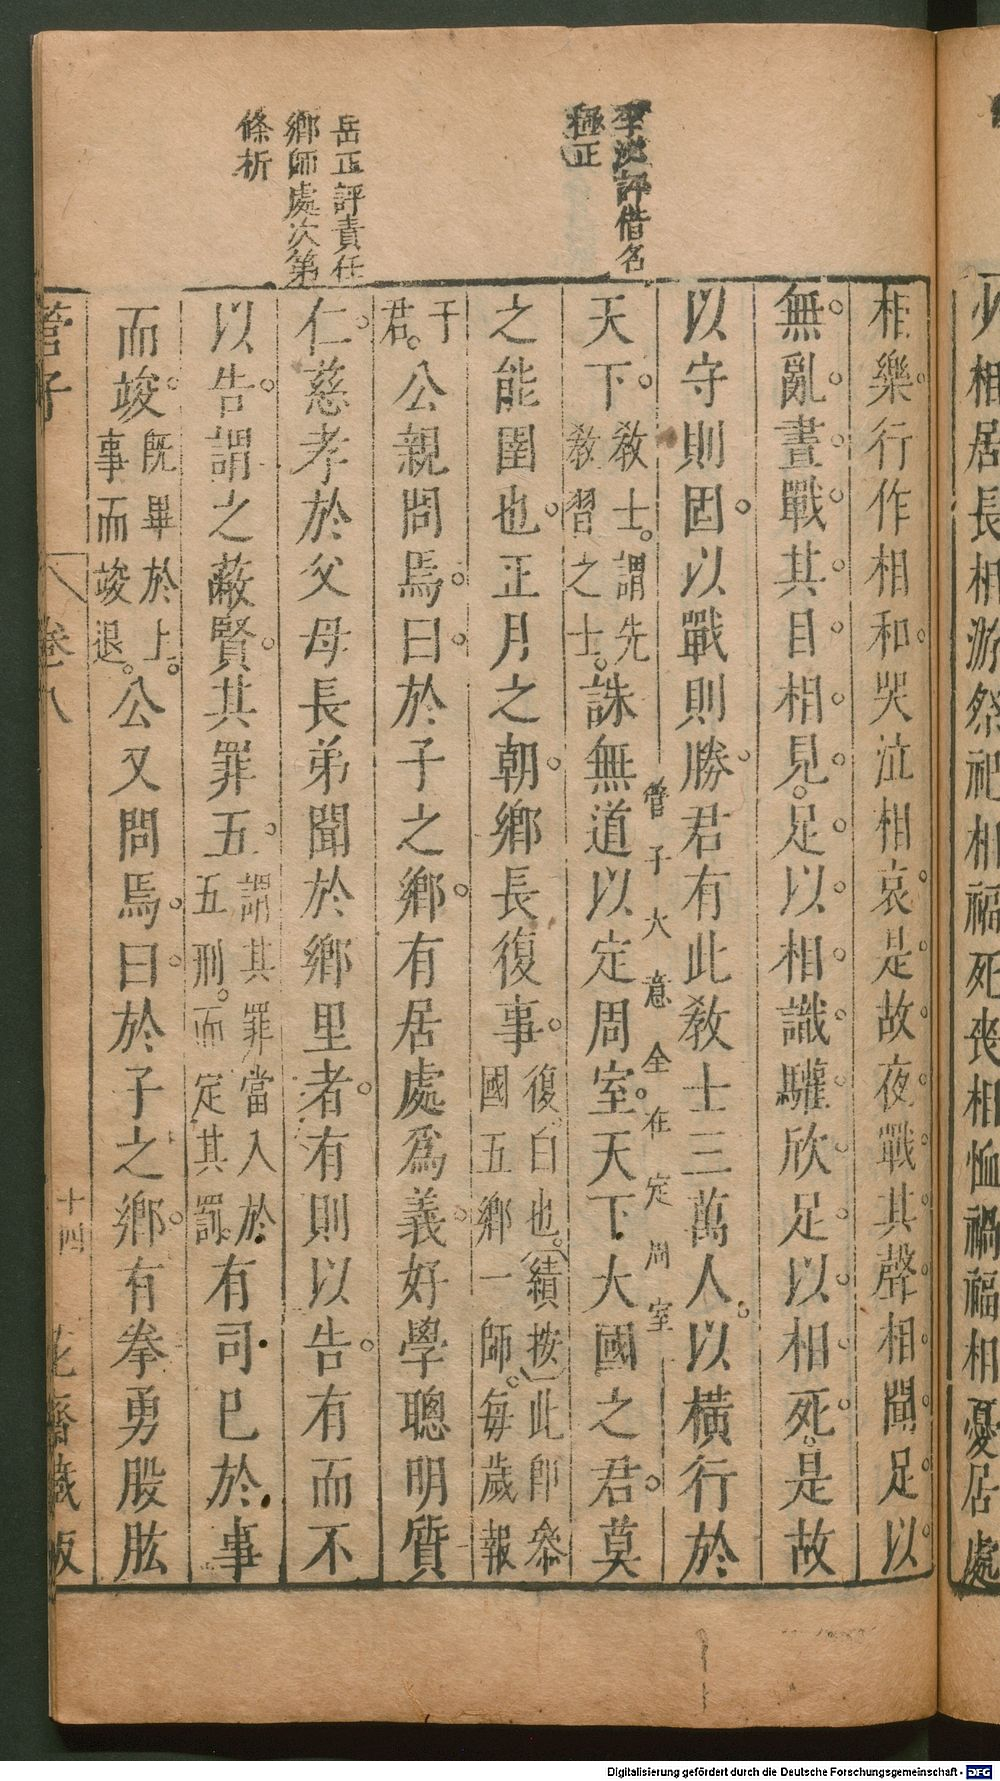 少相居長相游祭祀相福死喪相恤禍福相憂居處
相樂行作相和哭泣相哀是故夜戰其聲相聞足以
無亂晝戰其目相見足以相識驩欣足以相死是故
以守則固以戰則勝君有此教士三萬人以橫行於
管子大意全在定周室
天下教士謂先教習之士誅無道以定周室天下大國之君莫
之能圉也正月之朝鄉長復事復白也(績按)此師參國五鄉一師每歲報
于君公親問焉曰於子之鄉有居處為義好學聰明質
仁慈孝於父母長弟聞於鄉里者有則以告有而不
以告謂之蔽賢其罪五謂其罪當入於五刑而定其罰有司已於事
而竣既畢於上事而竣退公又問焉曰於子之鄉有拳勇股肱
管子
卷八
十四
花齋藏板
評借名
極正
岳正評責任
鄉師處次第
條析
Digitalisierung gefördert durch die Deutsche Forschungsgemeinschaft - DFG